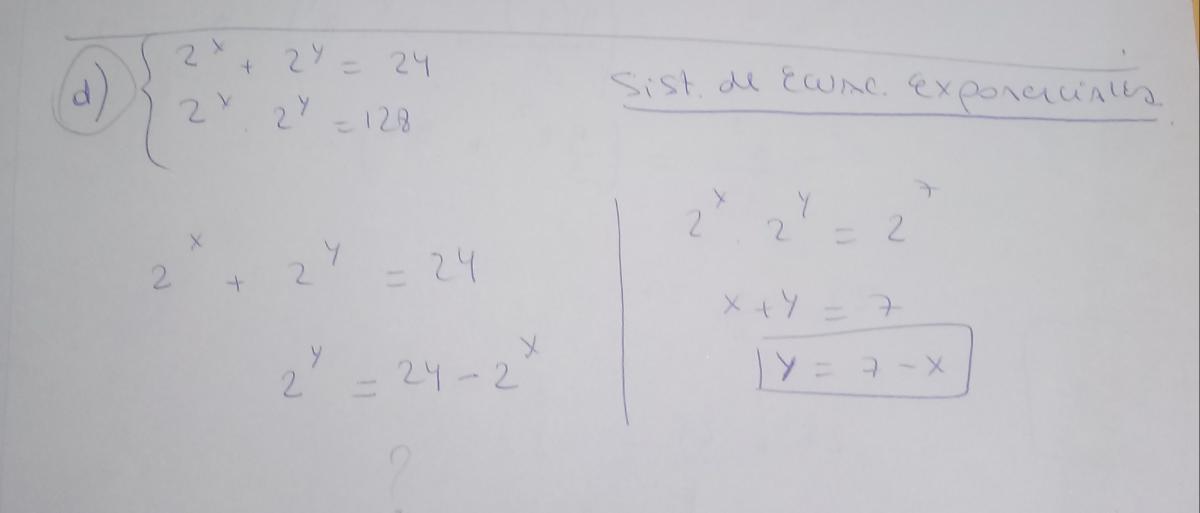 d) 2^x + 2^y = 24
2^x . 2^y = 128
Sist. de Ecuac. Exponenciales
2^x + 2^y = 24
2^y = 24 - 2^x
?
2^x . 2^y = 2^7
x + y = 7
y = 7 - x